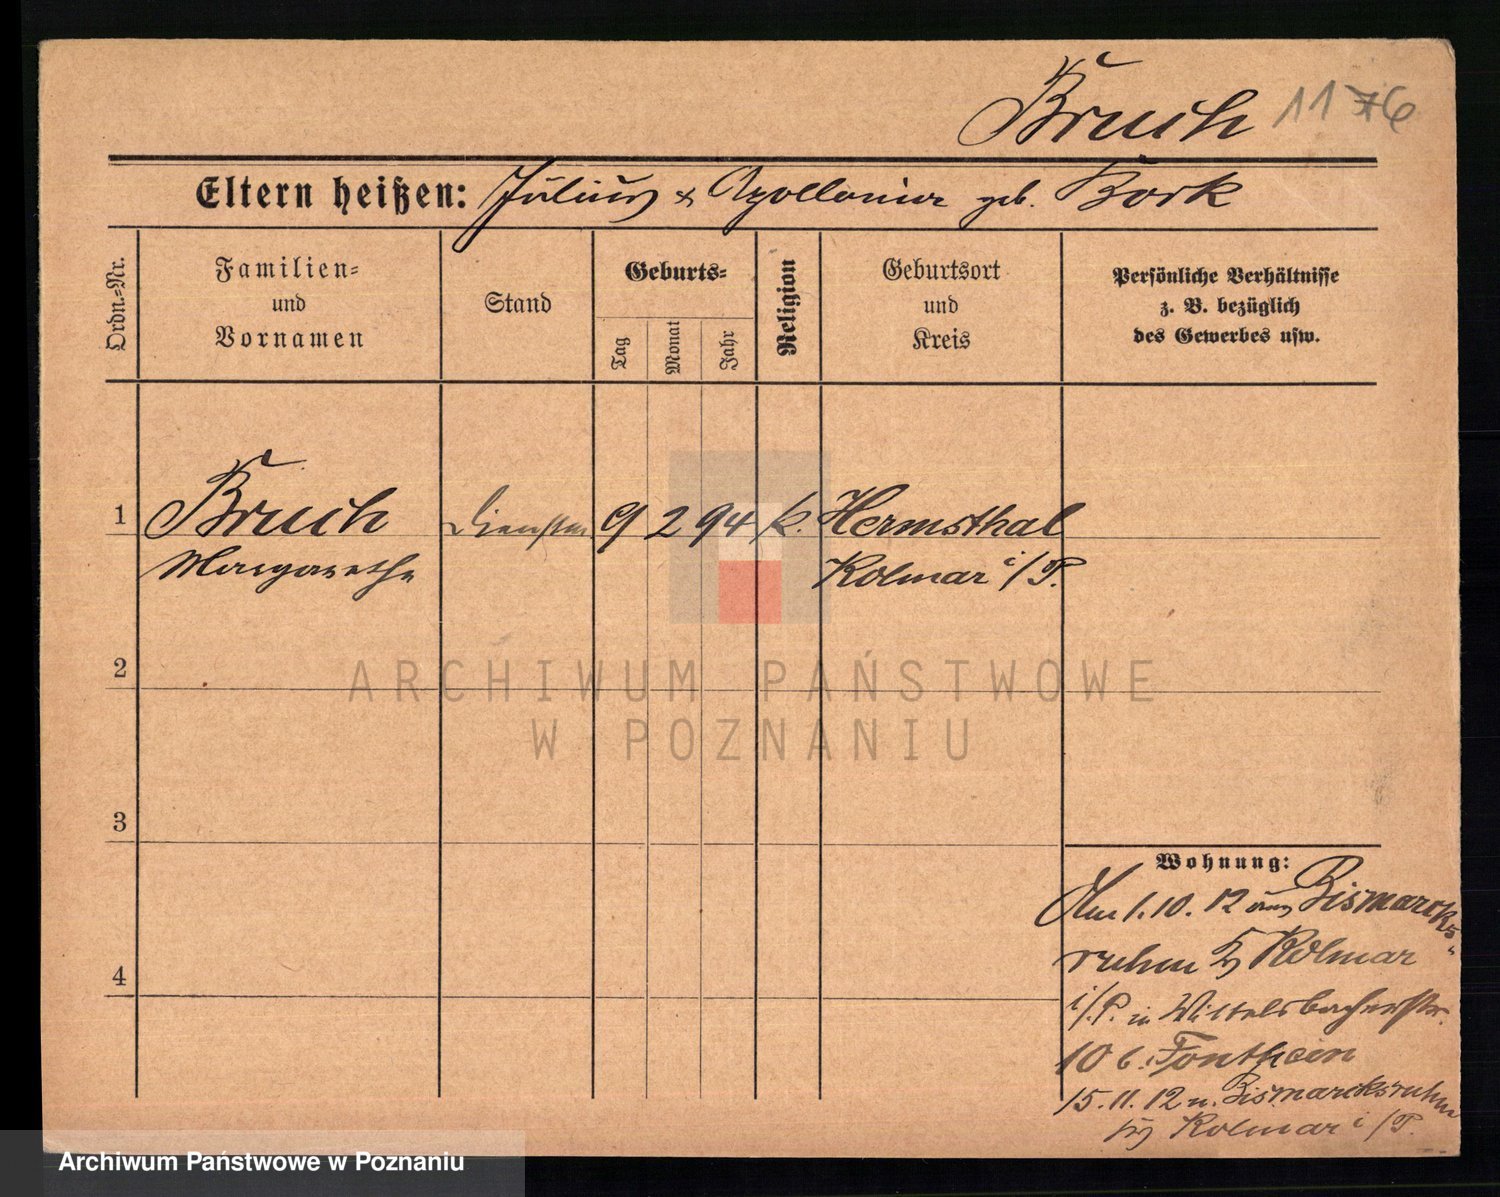 Bruch 1176
Eltern heißen: Julius & Apollonia geb. Bork
Ordn.=Nr.
Familien=
und
Vornamen
Stand
Geburts=
Tag
Monat
Jahr
Religion
Geburtsort
und
Kreis
Persönliche Verhältnisse
z. B. bezüglich
des Gewerbes usw.
1 Bruch 9 2 94 k. Hermsthal
Margarethe Kolmar i/P.
2
3
4
Wohnung:
Am 1.10.12 aus Bismarcks-
ruhm Kr Kolmar
i/P. in Wittelsbacherstr.
10 b. Fontheim
15.11.12 n. Bismarcksruhm
Kr Kolmar i/P.
ARCHIWUM PAŃSTWOWE
W POZNANIU
Archiwum Państwowe w Poznaniu